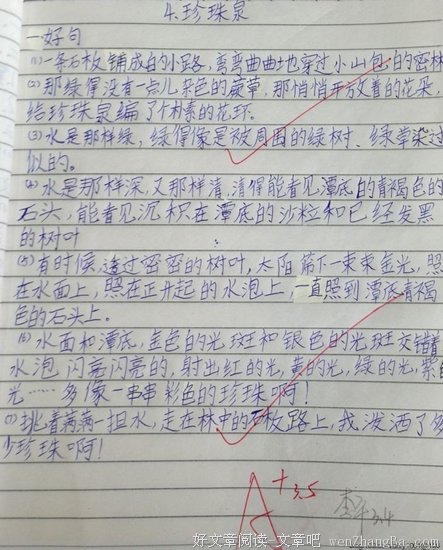 4.珍珠泉
一好句
(1)一条石板铺成的小路，弯弯曲曲地穿过小山包的密林
(2)那绿得没有一点儿杂色的蕨草，那悄悄开放着的花朵，
给珍珠泉编了个朴素的花环。
(3)水是那样绿，绿得像是被周围的绿树、绿草染过
似的。
(4)水是那样深，又那样清，清得能看见潭底的青褐色的
石头，能看见沉积在潭底的沙粒和已经发黑
的树叶
(5)有时候，透过密密的树叶，太阳筛下一束束金光，照
在水面上，照在正升起的水泡上，一直照到潭底青褐
色的石头上。
(6)水面和潭底，金色的光斑和银色的光斑交错着
水泡闪亮闪亮的，射出红的光，黄的光，绿的光，紫的
光……多像一串串彩色的珍珠啊！
(7)挑着满满一担水，走在林中的石板路上，我泼洒了多
少珍珠啊！
A+ 3.5
3.4
好文章阅读-文章吧 wenZhangBa.com